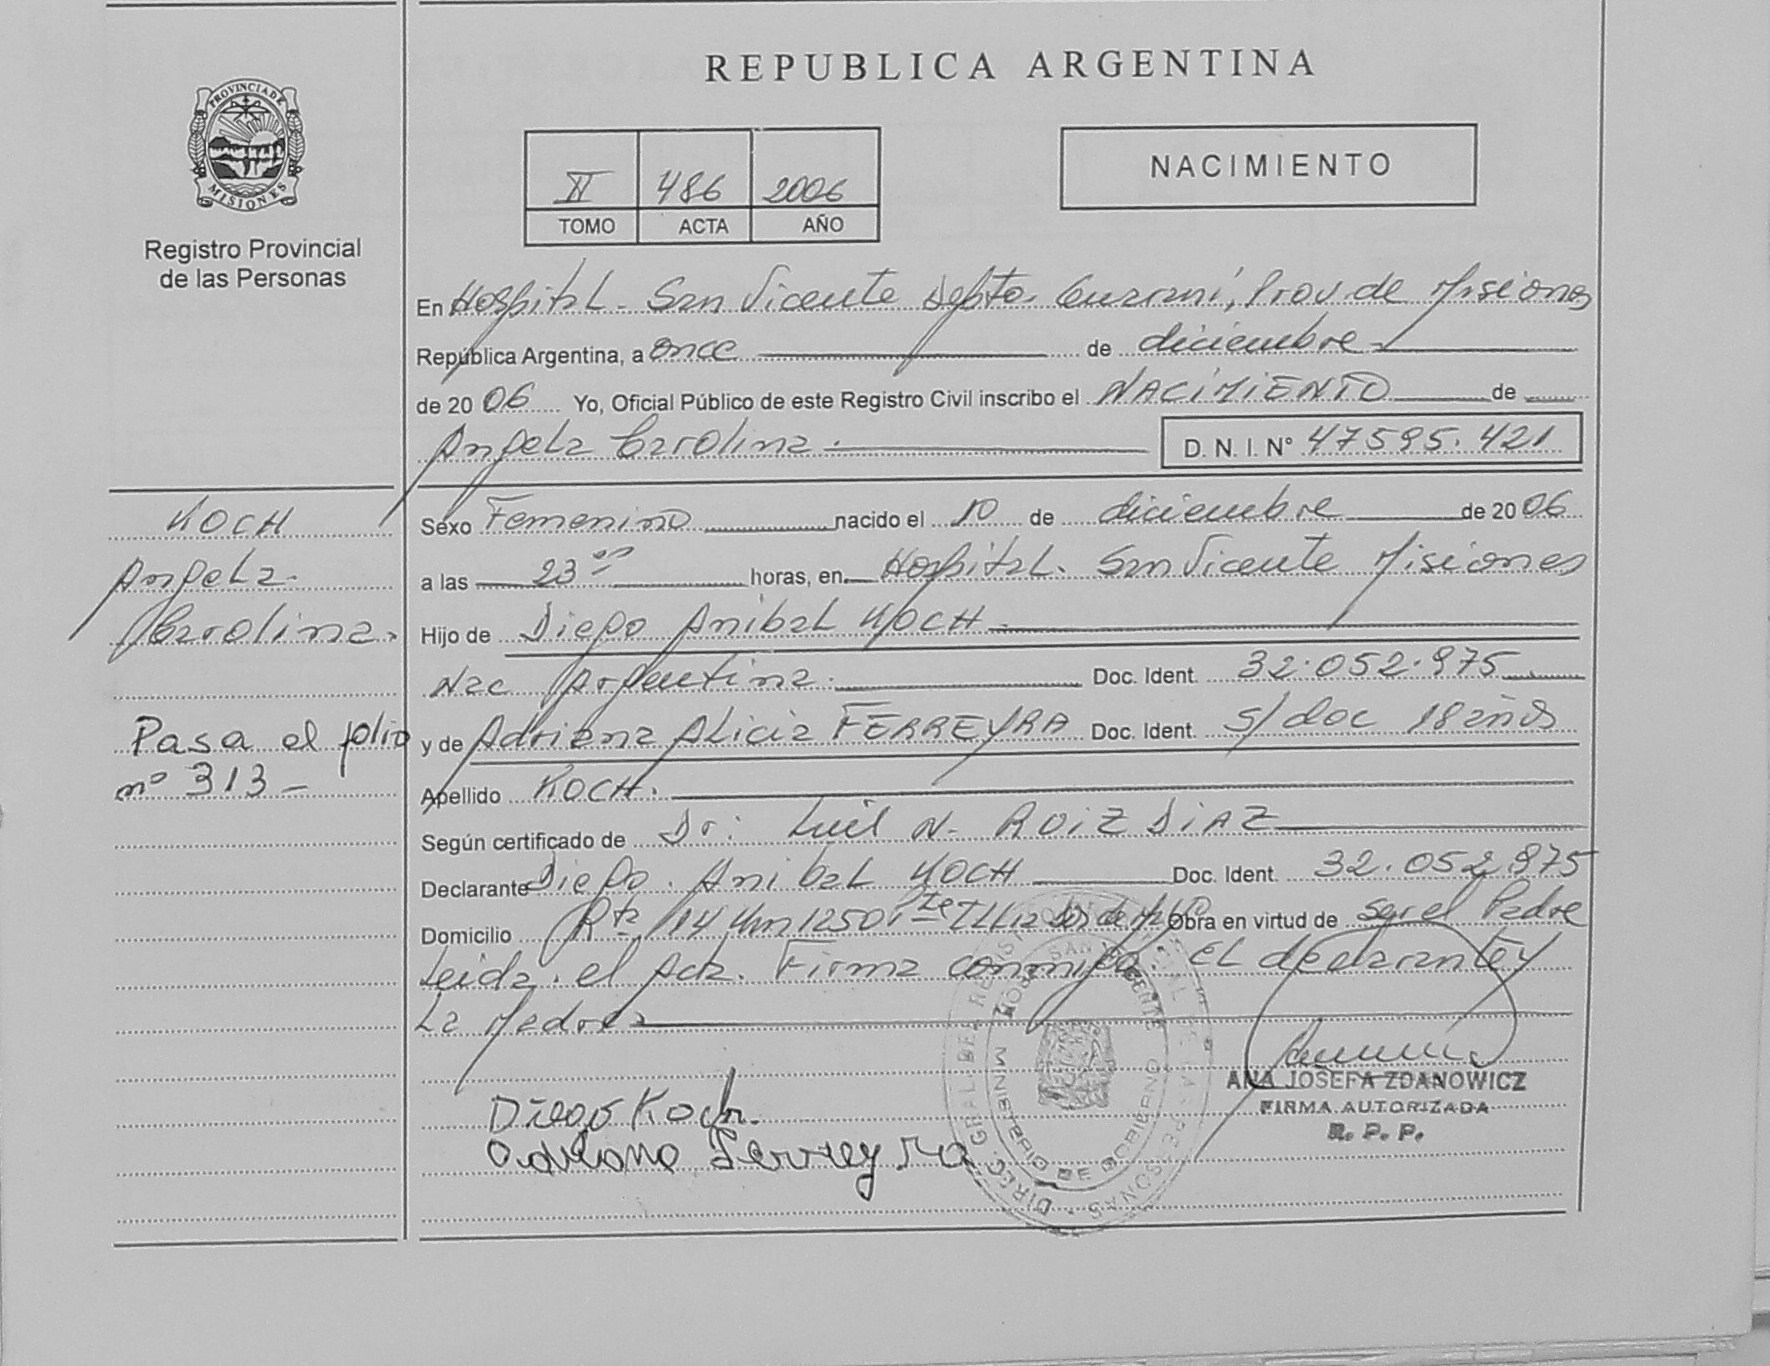 PROVINCIA DE
MISIONES
Registro Provincial
de las Personas
REPUBLICA ARGENTINA
II 486 2006
TOMO ACTA AÑO
NACIMIENTO
En Hospital - San Vicente Depto. Guaraní, Prov. de Misiones
República Argentina, a once de diciembre
de 20 06 Yo, Oficial Público de este Registro Civil inscribo el NACIMIENTO de
Angela Carolina. D. N. I. N° 47595.421
KOCH
Angela
Carolina.
Pasa al folio
nº 313 -
Sexo Femenino nacido el 10 de diciembre de 20 06
a las 23 horas, en Hospital. San Vicente Misiones
Hijo de Diego Anibal KOCH
Nac Argentina. Doc. Ident. 32.052.975
y de Adriana Alicia FERREYRA Doc. Ident. S/doc 18 años
Apellido KOCH.
Según certificado de Dr: N. RUIZ DIAZ
Declarante Diego Anibal KOCH Doc. Ident. 32.052.975
Domicilio Rta 14 Km 1250 Obra en virtud de ser el Padre
Leida el Acta. Firma conmigo. El declarante y
La Madre
Diego Koch.
Adriana Ferreyra
DIREC. GRAL. DEL REGISTRO PROVINCIAL DE LAS PERSONAS
MINISTERIO DE GOBIERNO
ANA JOSEFA ZDANOWICZ
FIRMA AUTORIZADA
R. P. P.